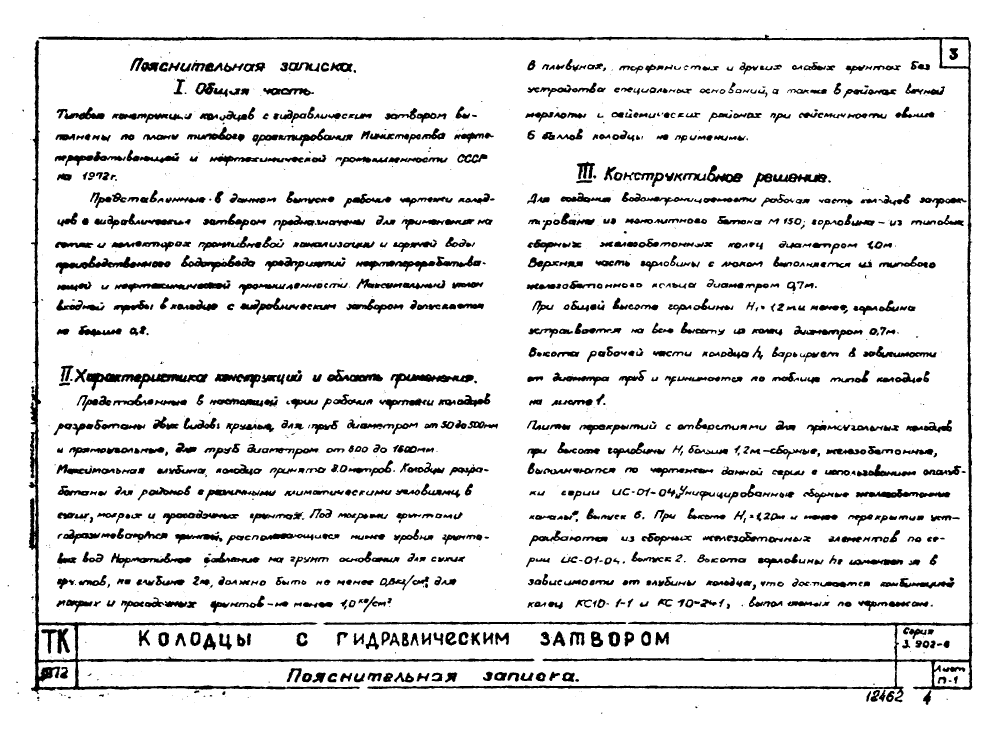 3
Пояснительная записка.
I. Общая часть.
Типовые конструкции колодцев с гидравлическим затвором вы-
полнены по плану типового проектирования Министерства нефте-
перерабатывающей и нефтехимической промышленности СССР
на 1972г.
Представленные в данном выпуске рабочие чертежи колод-
цев с гидравлическим затвором предназначены для применения на
сетях и коллекторах промливневой канализации и горячей воды
производственного водопровода предприятий нефтеперерабатыва-
ющей и нефтехимической промышленности. Максимальный уклон
входной трубы в колодце с гидравлическим затвором допускается
не больше 0,2.
II. Характеристика конструкций и область применения.
Представленные в настоящей серии рабочие чертежи колодцев
разработаны двух видов: круглые, для труб диаметром от 50 до 500мм
и прямоугольные, для труб диаметром от 600 до 1600мм.
Максимальная глубина колодца принята 8.0 метров. Колодцы разра-
ботаны для районов с различными климатическими условиями, в
сухих, мокрых и просадочных грунтах. Под мокрыми грунтами
подразумеваются грунты, располагающиеся ниже уровня грунто-
вых вод. Нормативное давление на грунт основания для сухих
грунтов, на глубине 2м, должно быть не менее кг/см², для
мокрых и просадочных грунтов - не менее 1,0 кг/см²
В плывунах, торфянистых и других слабых грунтах без
устройства специальных оснований, а также в районах вечной
мерзлоты и сейсмических районах при сейсмичности свыше
6 баллов колодцы не применимы.
III. Конструктивное решение.
Для создания водонепроницаемости рабочая часть колодцев запроек-
тирована из монолитного бетона М 150; горловина - из типовых
сборных железобетонных колец диаметром 1,0м.
Верхняя часть горловины с люком выполняется из типового
железобетонного кольца диаметром 0,7м.
При общей высоте горловины H₁ = 1,2м и менее, горловина
устраивается на всю высоту из колец диаметром 0,7м.
Высота рабочей части колодца h, варьирует в зависимости
от диаметра труб и принимается по таблице типов колодцев
на листе 1.
Плиты перекрытий с отверстиями для прямоугольных колодцев
при высоте горловины H, больше 1,2м - сборные, железобетонные,
выполняются по чертежам данной серии с использованием опалуб-
ки серии ИС-01-04 „Унифицированные сборные железобетонные
каналы", выпуск 6. При высоте H₁ = 1,20м и менее перекрытия уст-
раиваются из сборных железобетонных элементов по се-
рии ИС-01-04. выпуск 2. Высота горловины изменяется в
зависимости от глубины колодца, что достигается комбинацией
колец КС10-1-1 и выполняемых по чертежам.
ТК
КОЛОДЦЫ С ГИДРАВЛИЧЕСКИМ ЗАТВОРОМ
Серия
3.902-6
1972
Пояснительная записка.
Лист
П-1
12462 4